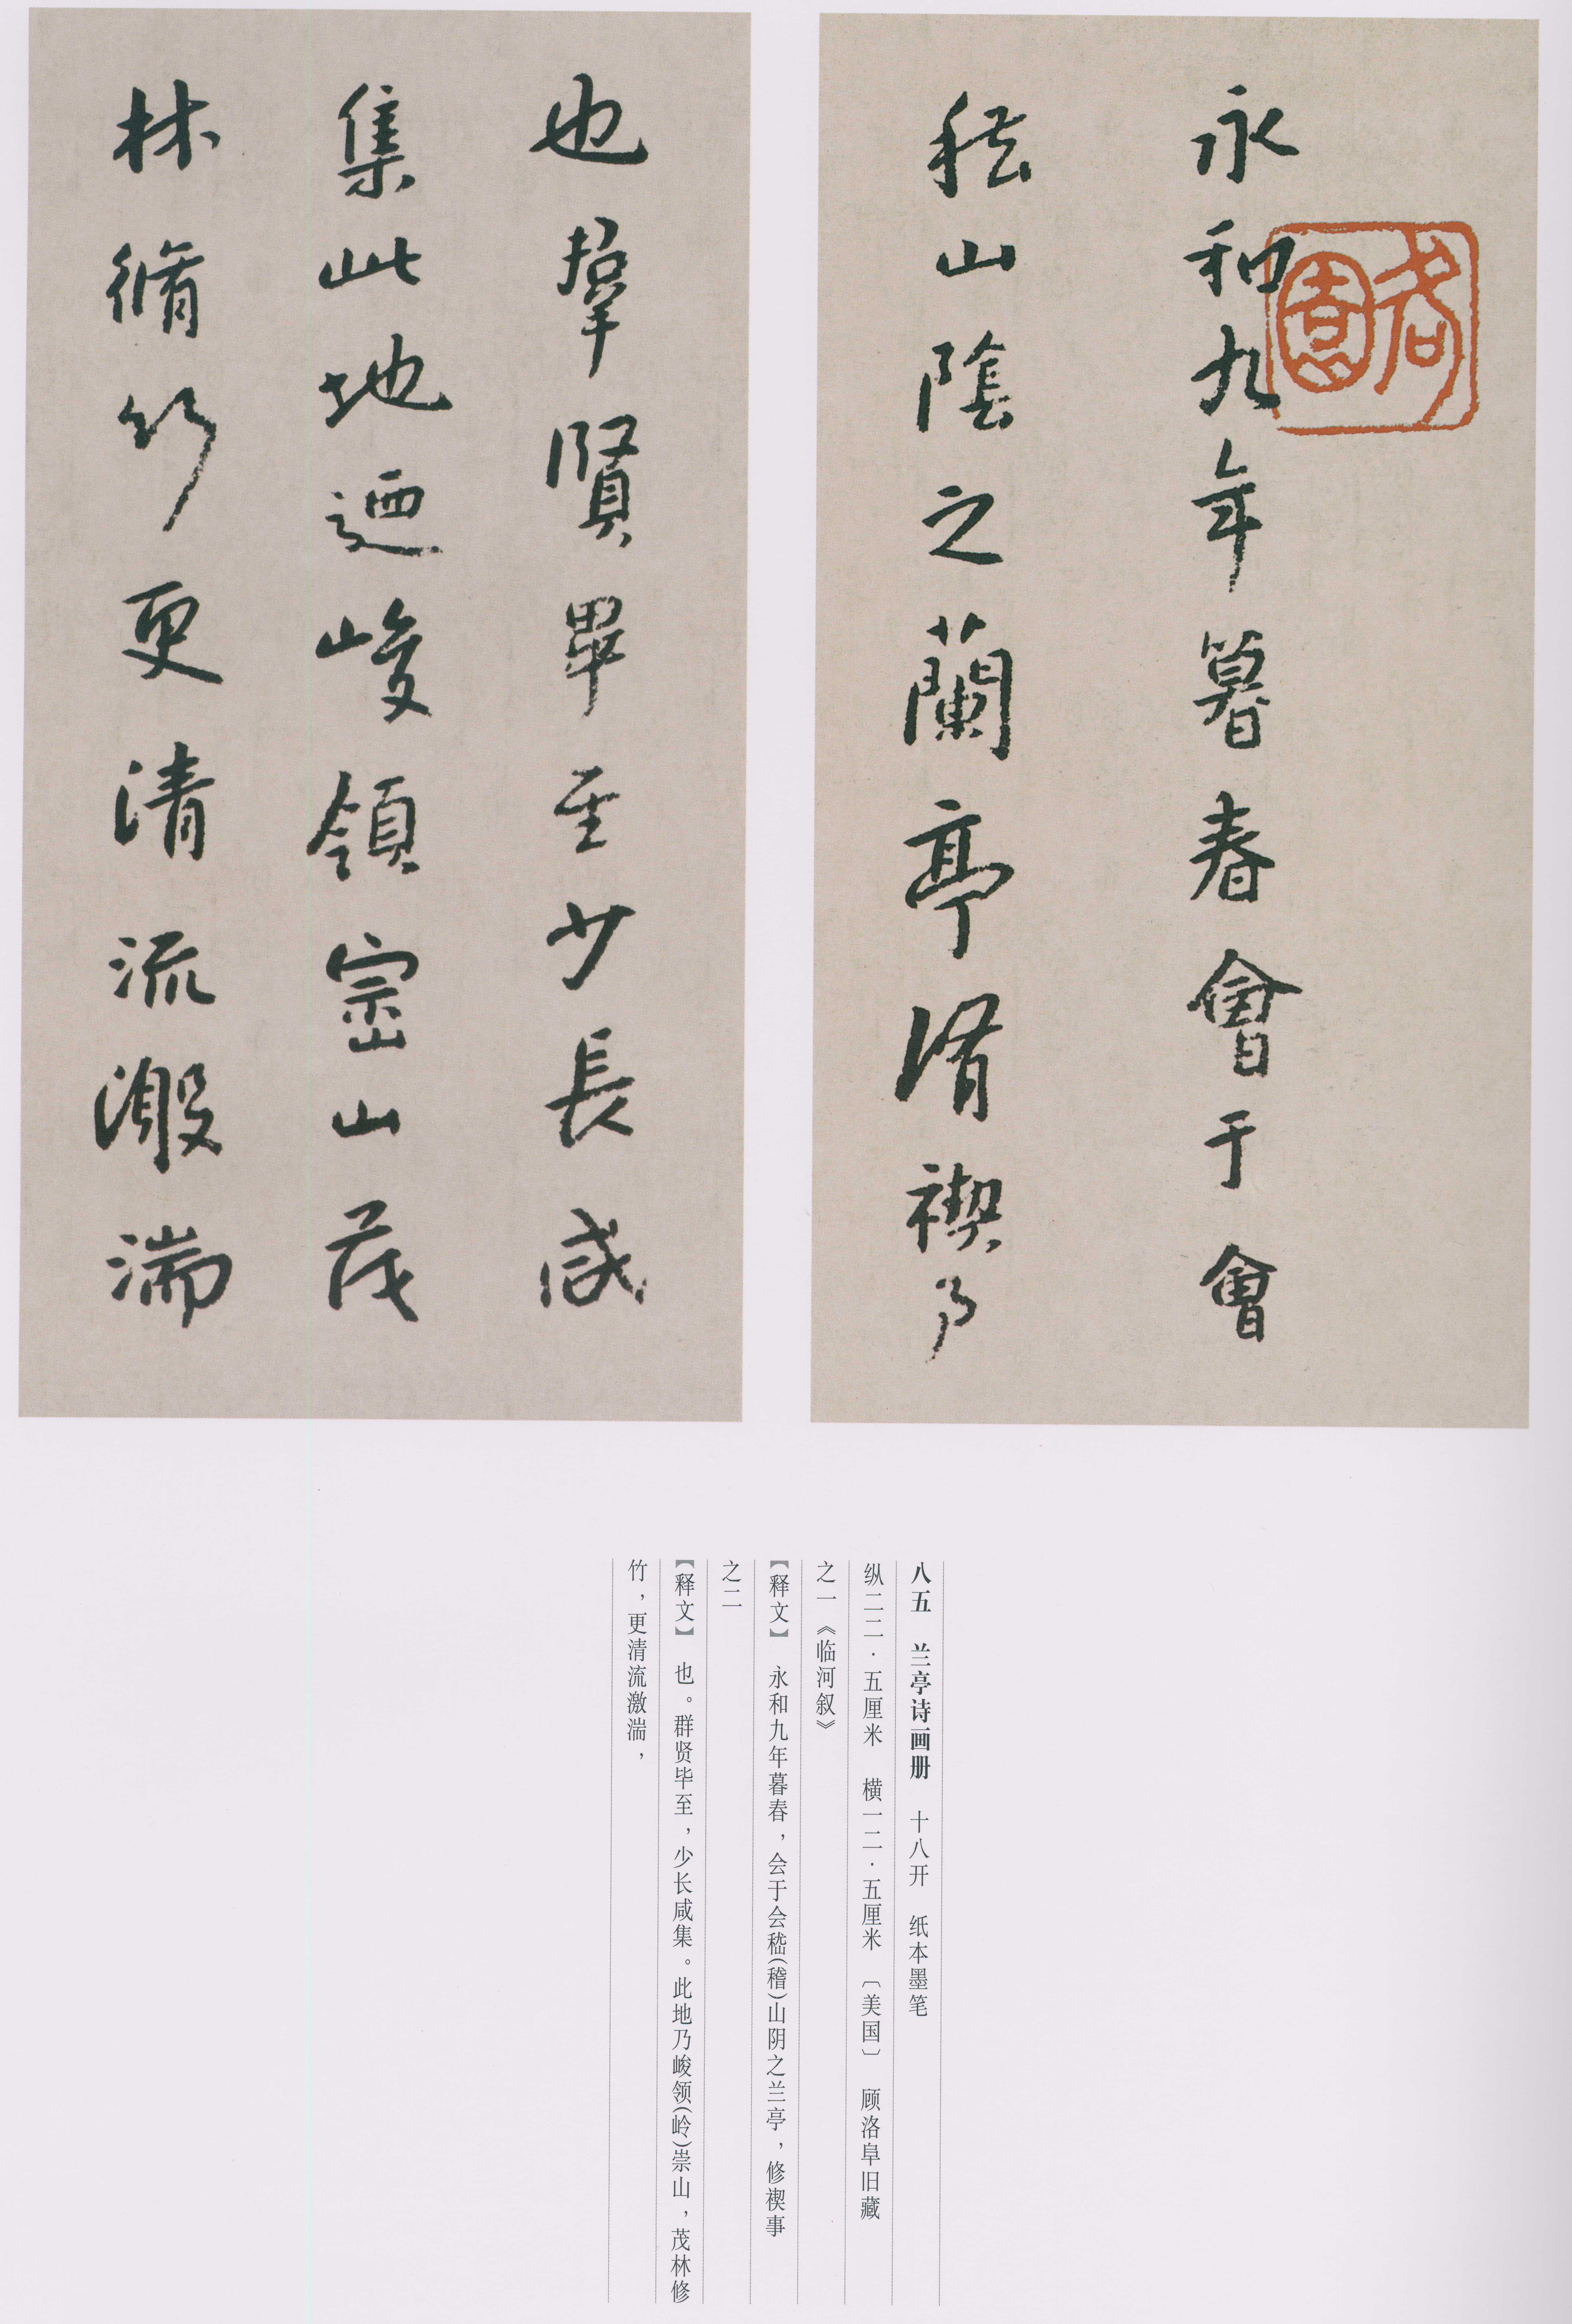 永和九年暮春會于會
嵇山陰之蘭亭脩禊事
也羣賢畢至少長咸
集此地迺峻領崇山茂
林脩竹更清流激湍
八五 兰亭诗画册 十八开 纸本墨笔
纵二二·五厘米 横一二·五厘米 〔美国〕 顾洛阜旧藏
之一《临河叙》
【释文】 永和九年暮春，会于会嵇（稽）山阴之兰亭，修禊事
之二
【释文】 也。群贤毕至，少长咸集。此地乃峻领（岭）崇山，茂林修
竹，更清流激湍，